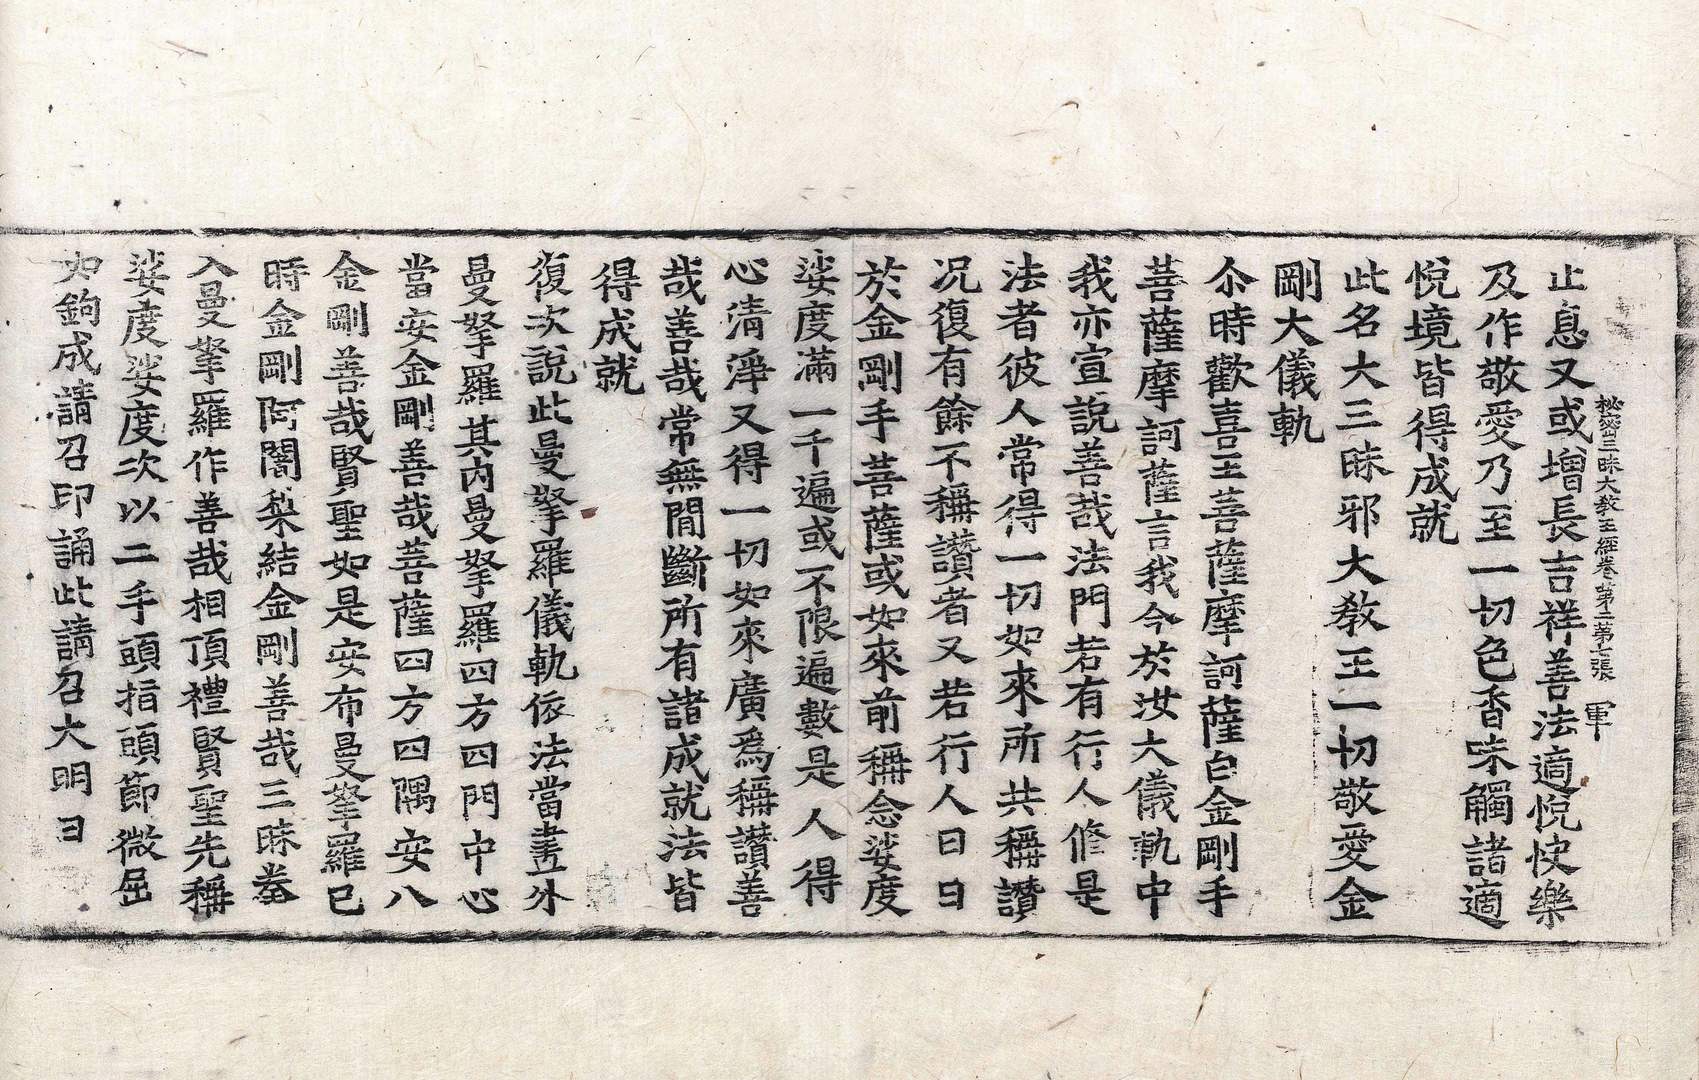 秘密三昧大教王經卷第二第二張 軍
止息又或增長吉祥善法適悅快樂
及作敬愛乃至一切色香味觸諸適
悅境皆得成就
此名大三昧邪大教王一切敬愛金
剛大儀軌
尒時歡喜王菩薩摩訶薩白金剛手
菩薩摩訶薩言我今於汝大儀軌中
我亦宣說善哉法門若有行人修是
法者彼人常得一切如來所共稱讚
况復有餘不稱讚者又若行人日日
於金剛手菩薩或如來前稱念娑度
娑度滿一千遍或不限遍數是人得
心清淨又得一切如來廣爲稱讚善
哉善哉常無閒斷所有諸成就法皆
得成就
復次說此曼拏羅儀軌依法當畫外
曼拏羅其內曼拏羅四方四門中心
當安金剛善哉菩薩四方四隅安八
金剛善哉賢聖如是安布曼拏羅已
時金剛阿闍梨結金剛善哉三昧拳
入曼拏羅作善哉相頂禮賢聖先稱
娑度娑度次以二手頭指頭節微屈
如鉤成請召印誦此請召大明曰